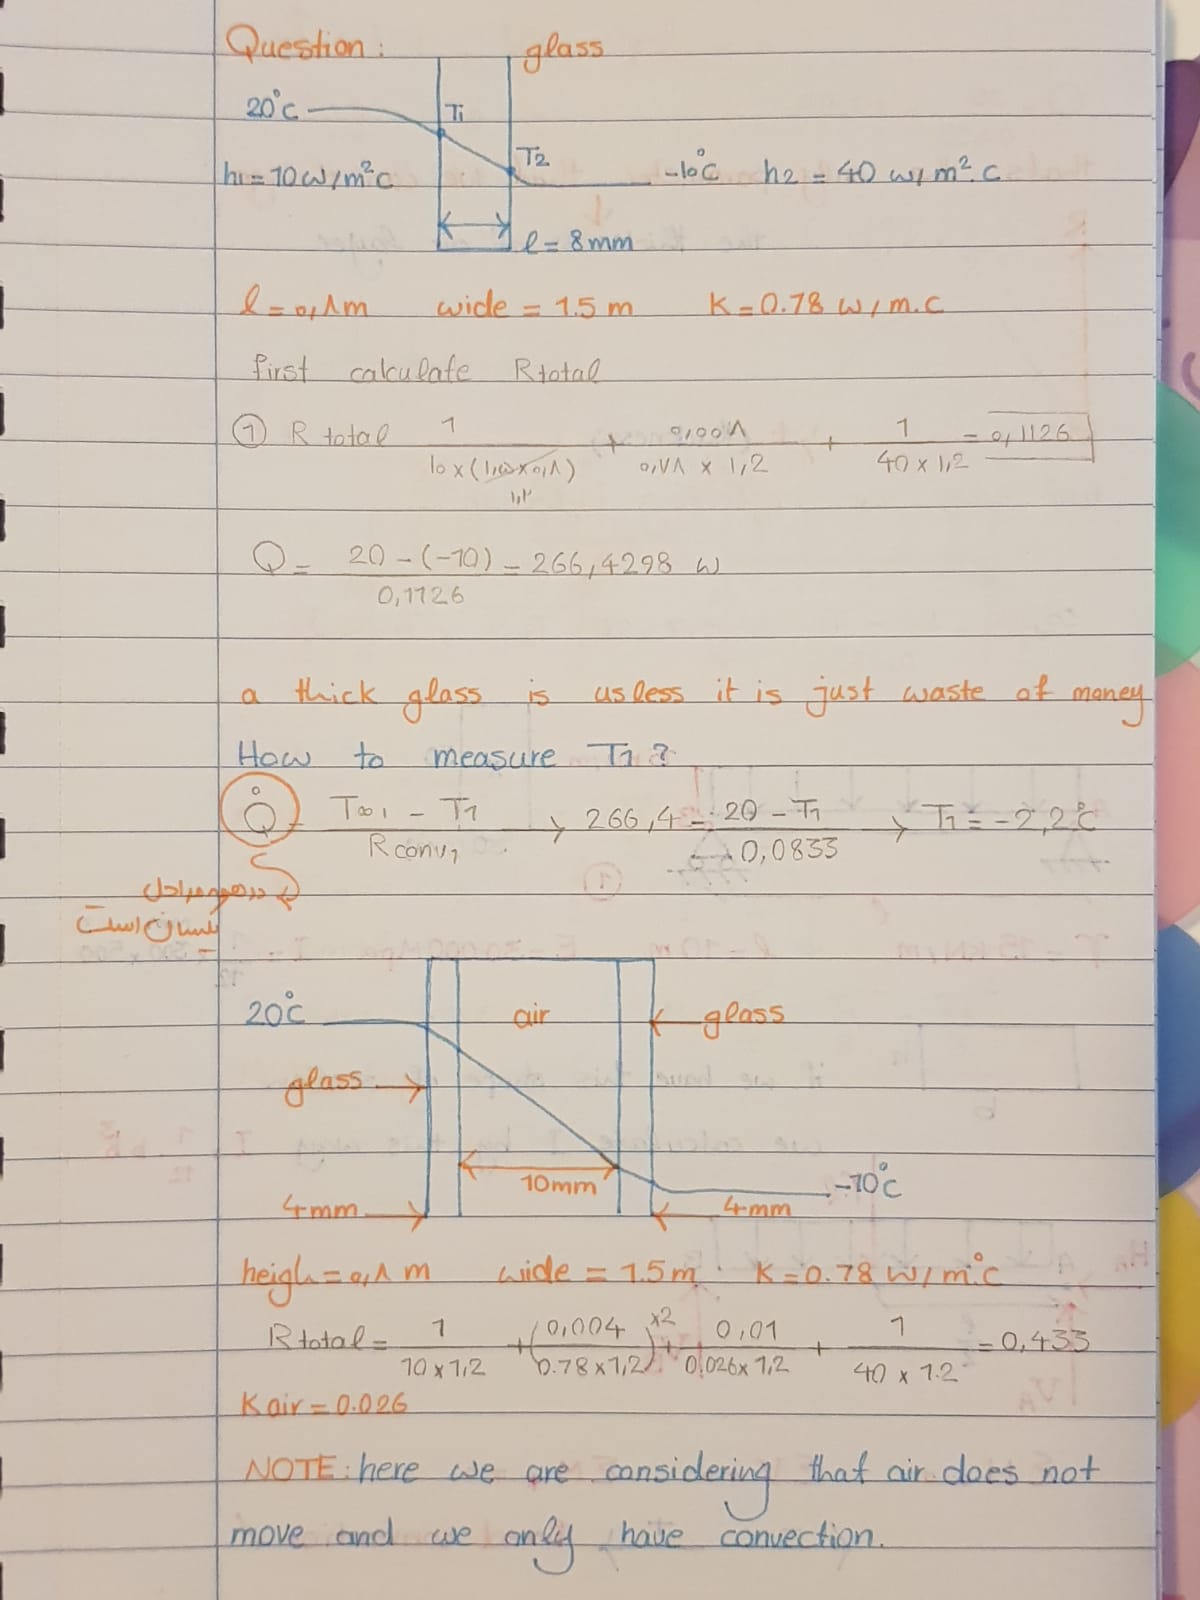 Question :
glass
20°C
T1
T2
h1 = 10 W/m²C
-10°C h2 = 40 W/m².C
l = 8mm
l = 0,8m wide = 1.5 m K = 0.78 W/m.C
first calculate Rtotal
① R total 1 / 10 x (1,۵ x 0,۸) ۱,۲ + 0,00۸ / 0,۷۸ x 1,2 + 1 / 40 x 1,2 = 0,1126
Q = 20 - (-10) / 0,1126 = 266,4298 W
a thick glass is usless it is just waste of money
How to measure T1 ?
Q̇ = T∞1 - T1 / Rconv1 → 266,4 = 20 - T1 / 0,0833 → T1 = -2,2°C
در همه مراحل
یکسان است
20°C
air
glass
glass
10mm
-10°C
4mm
4mm
heigh = 0,۸ m wide = 1.5 m K = 0.78 W/m°C
Rtotal = 1 / 10 x 1,2 + (0,004 / 0.78 x 1,2) x2 + 0,01 / 0,026 x 1,2 + 1 / 40 x 1.2 = 0,433
Kair = 0.026
NOTE : here we are considering that air does not
move and we only have convection.